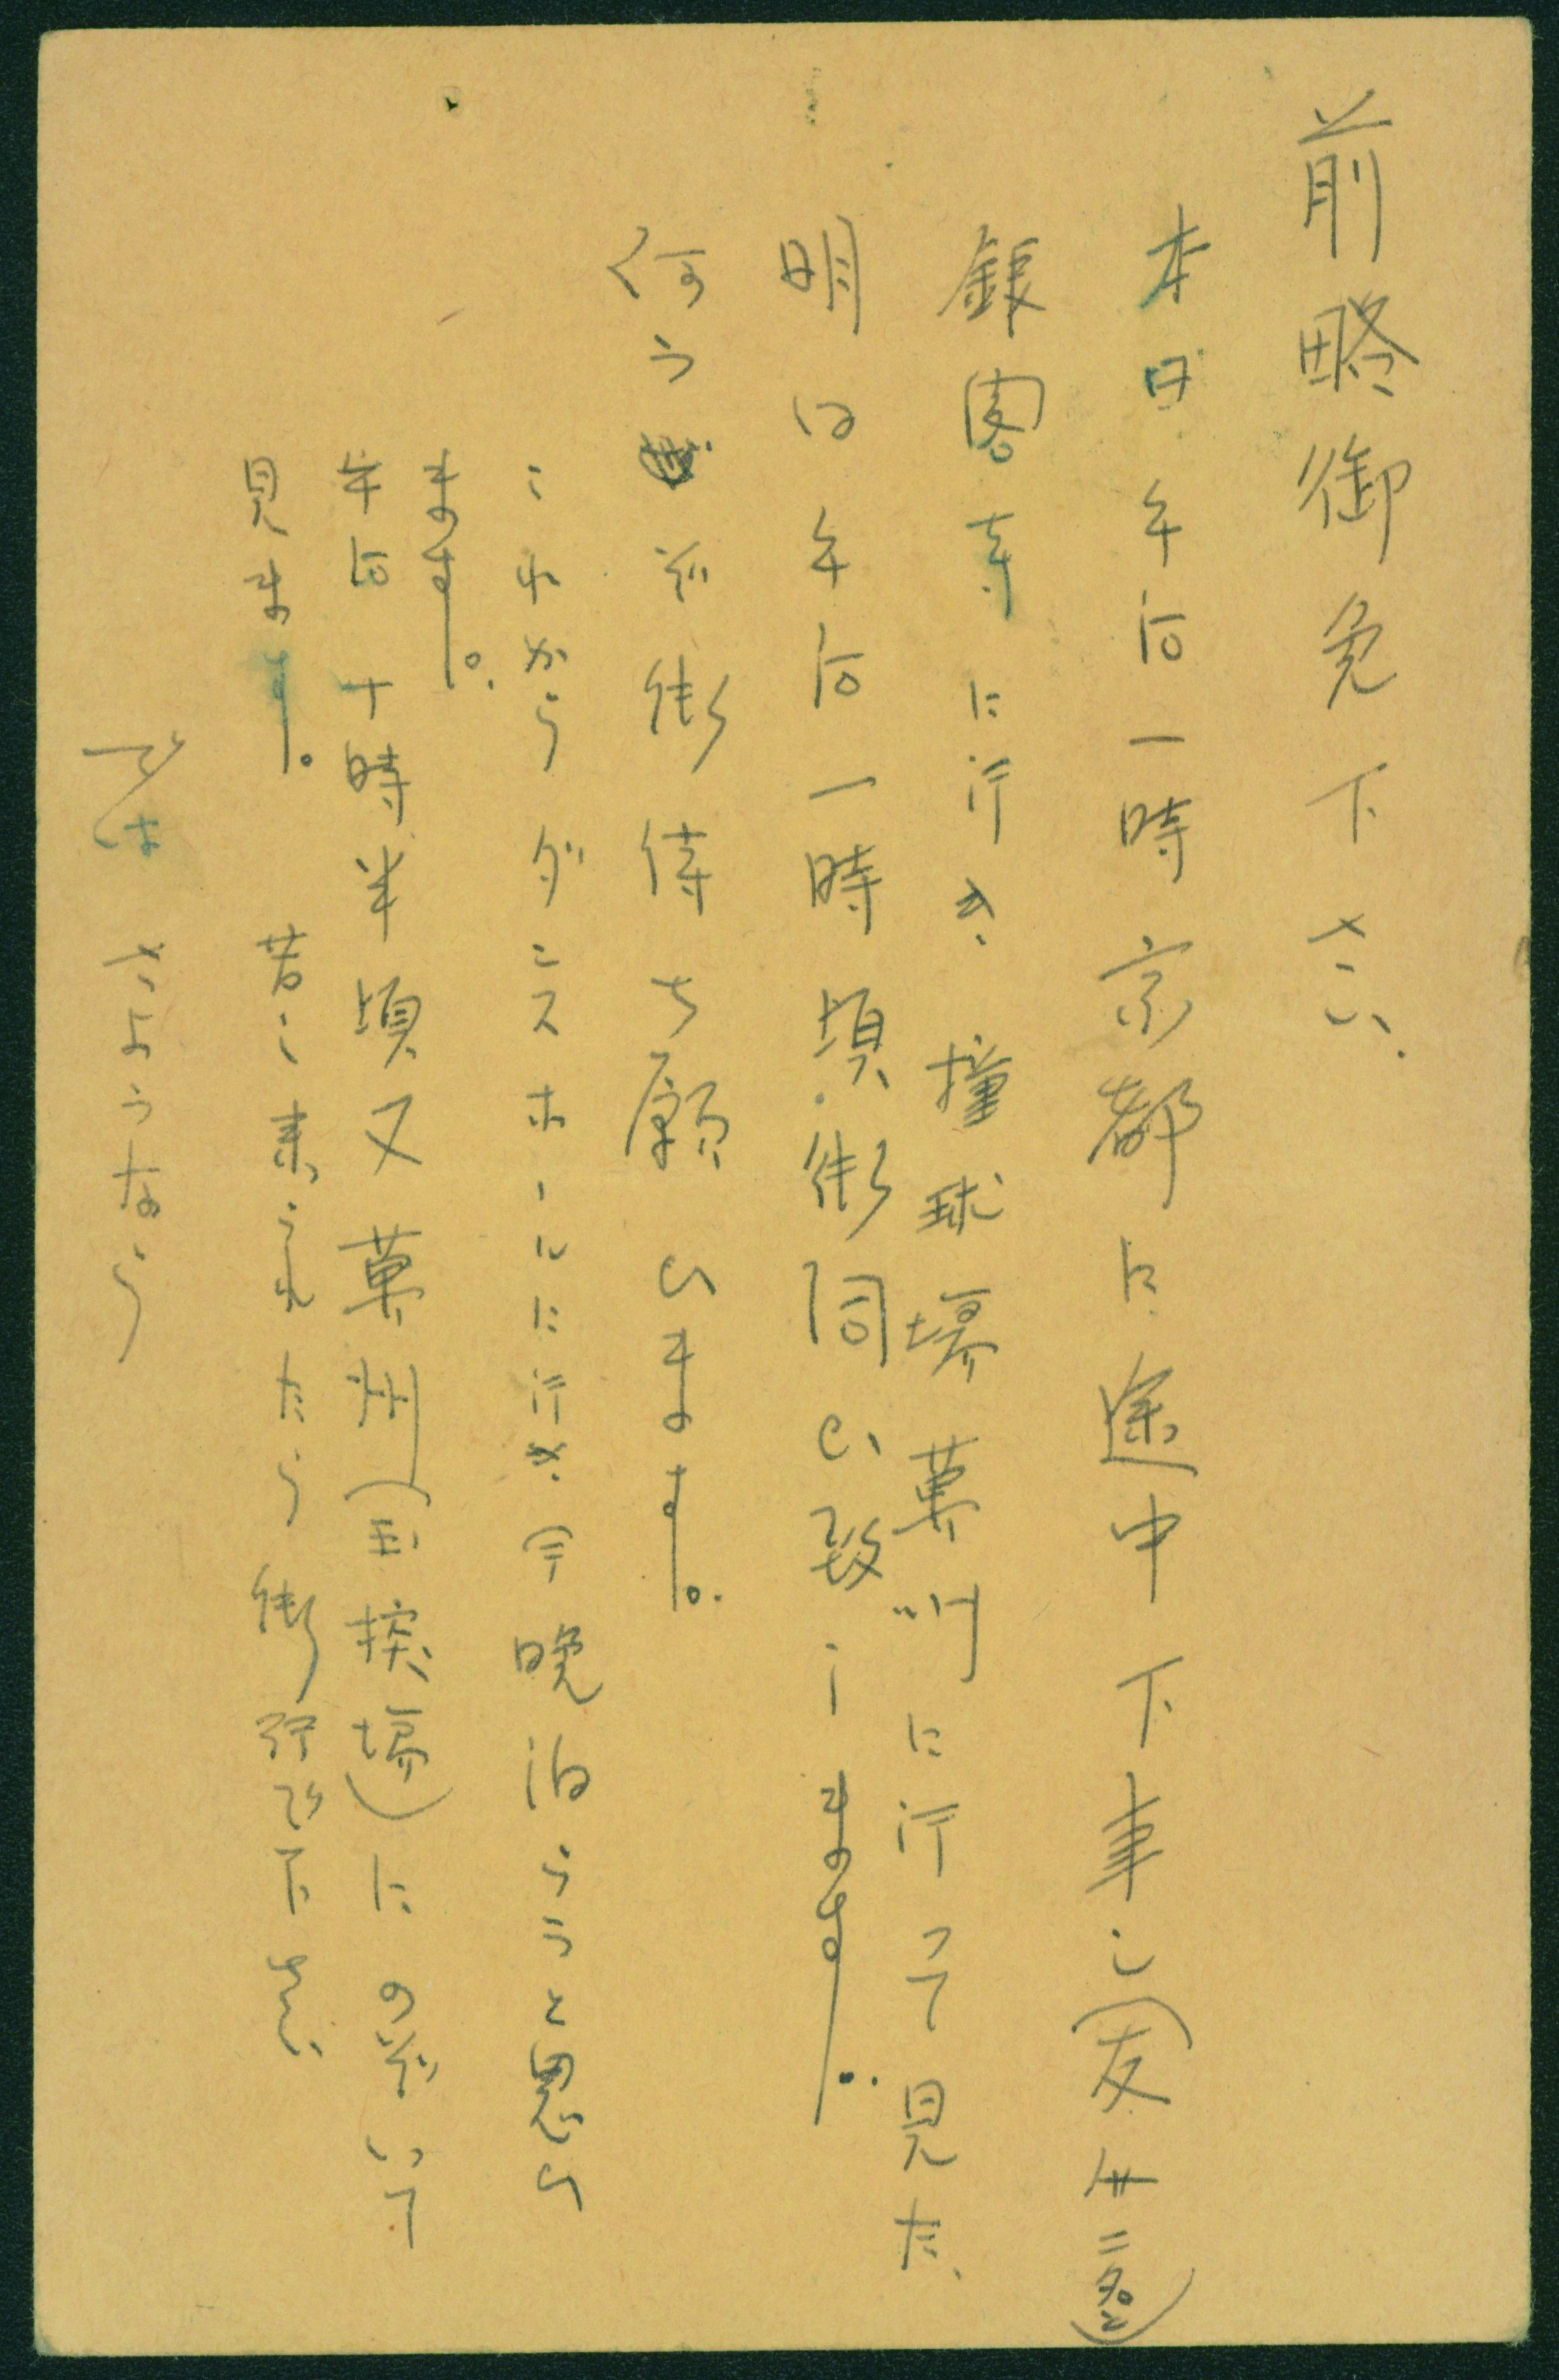 前略御免下さい、
本日午后一時京都に途中下車し(友サ二名と)
銀閣寺に行き、撞球場菓州に行って見た、
明日午后一時頃御伺い致します。
何うぞ御待ち願ひます。
これからダンスホールに行き、今晩泊らうと思ひ
ます。
午后十時半頃又菓州(玉撞場)にのぞいて
見ます。若し来られたら御呼び下さい
では さようなら